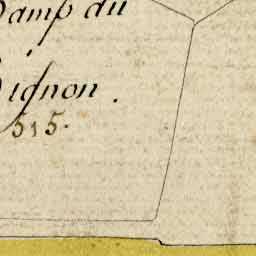 Champ du
Bignon.
515.